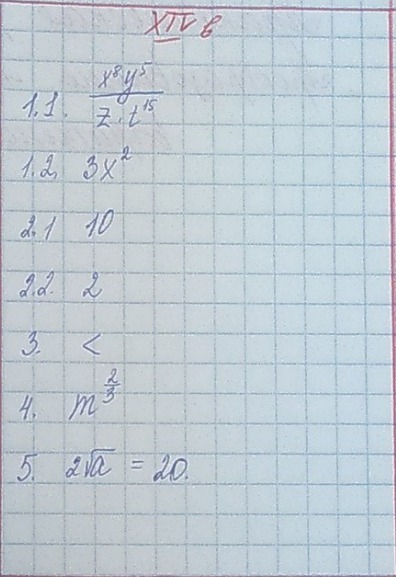 XIV в
1.1. x⁸y⁵ / z·t¹⁵
1.2. 3x²
2.1 10
2.2. 2
3. <
4. m^(2/3)
5. 2√a = 20.